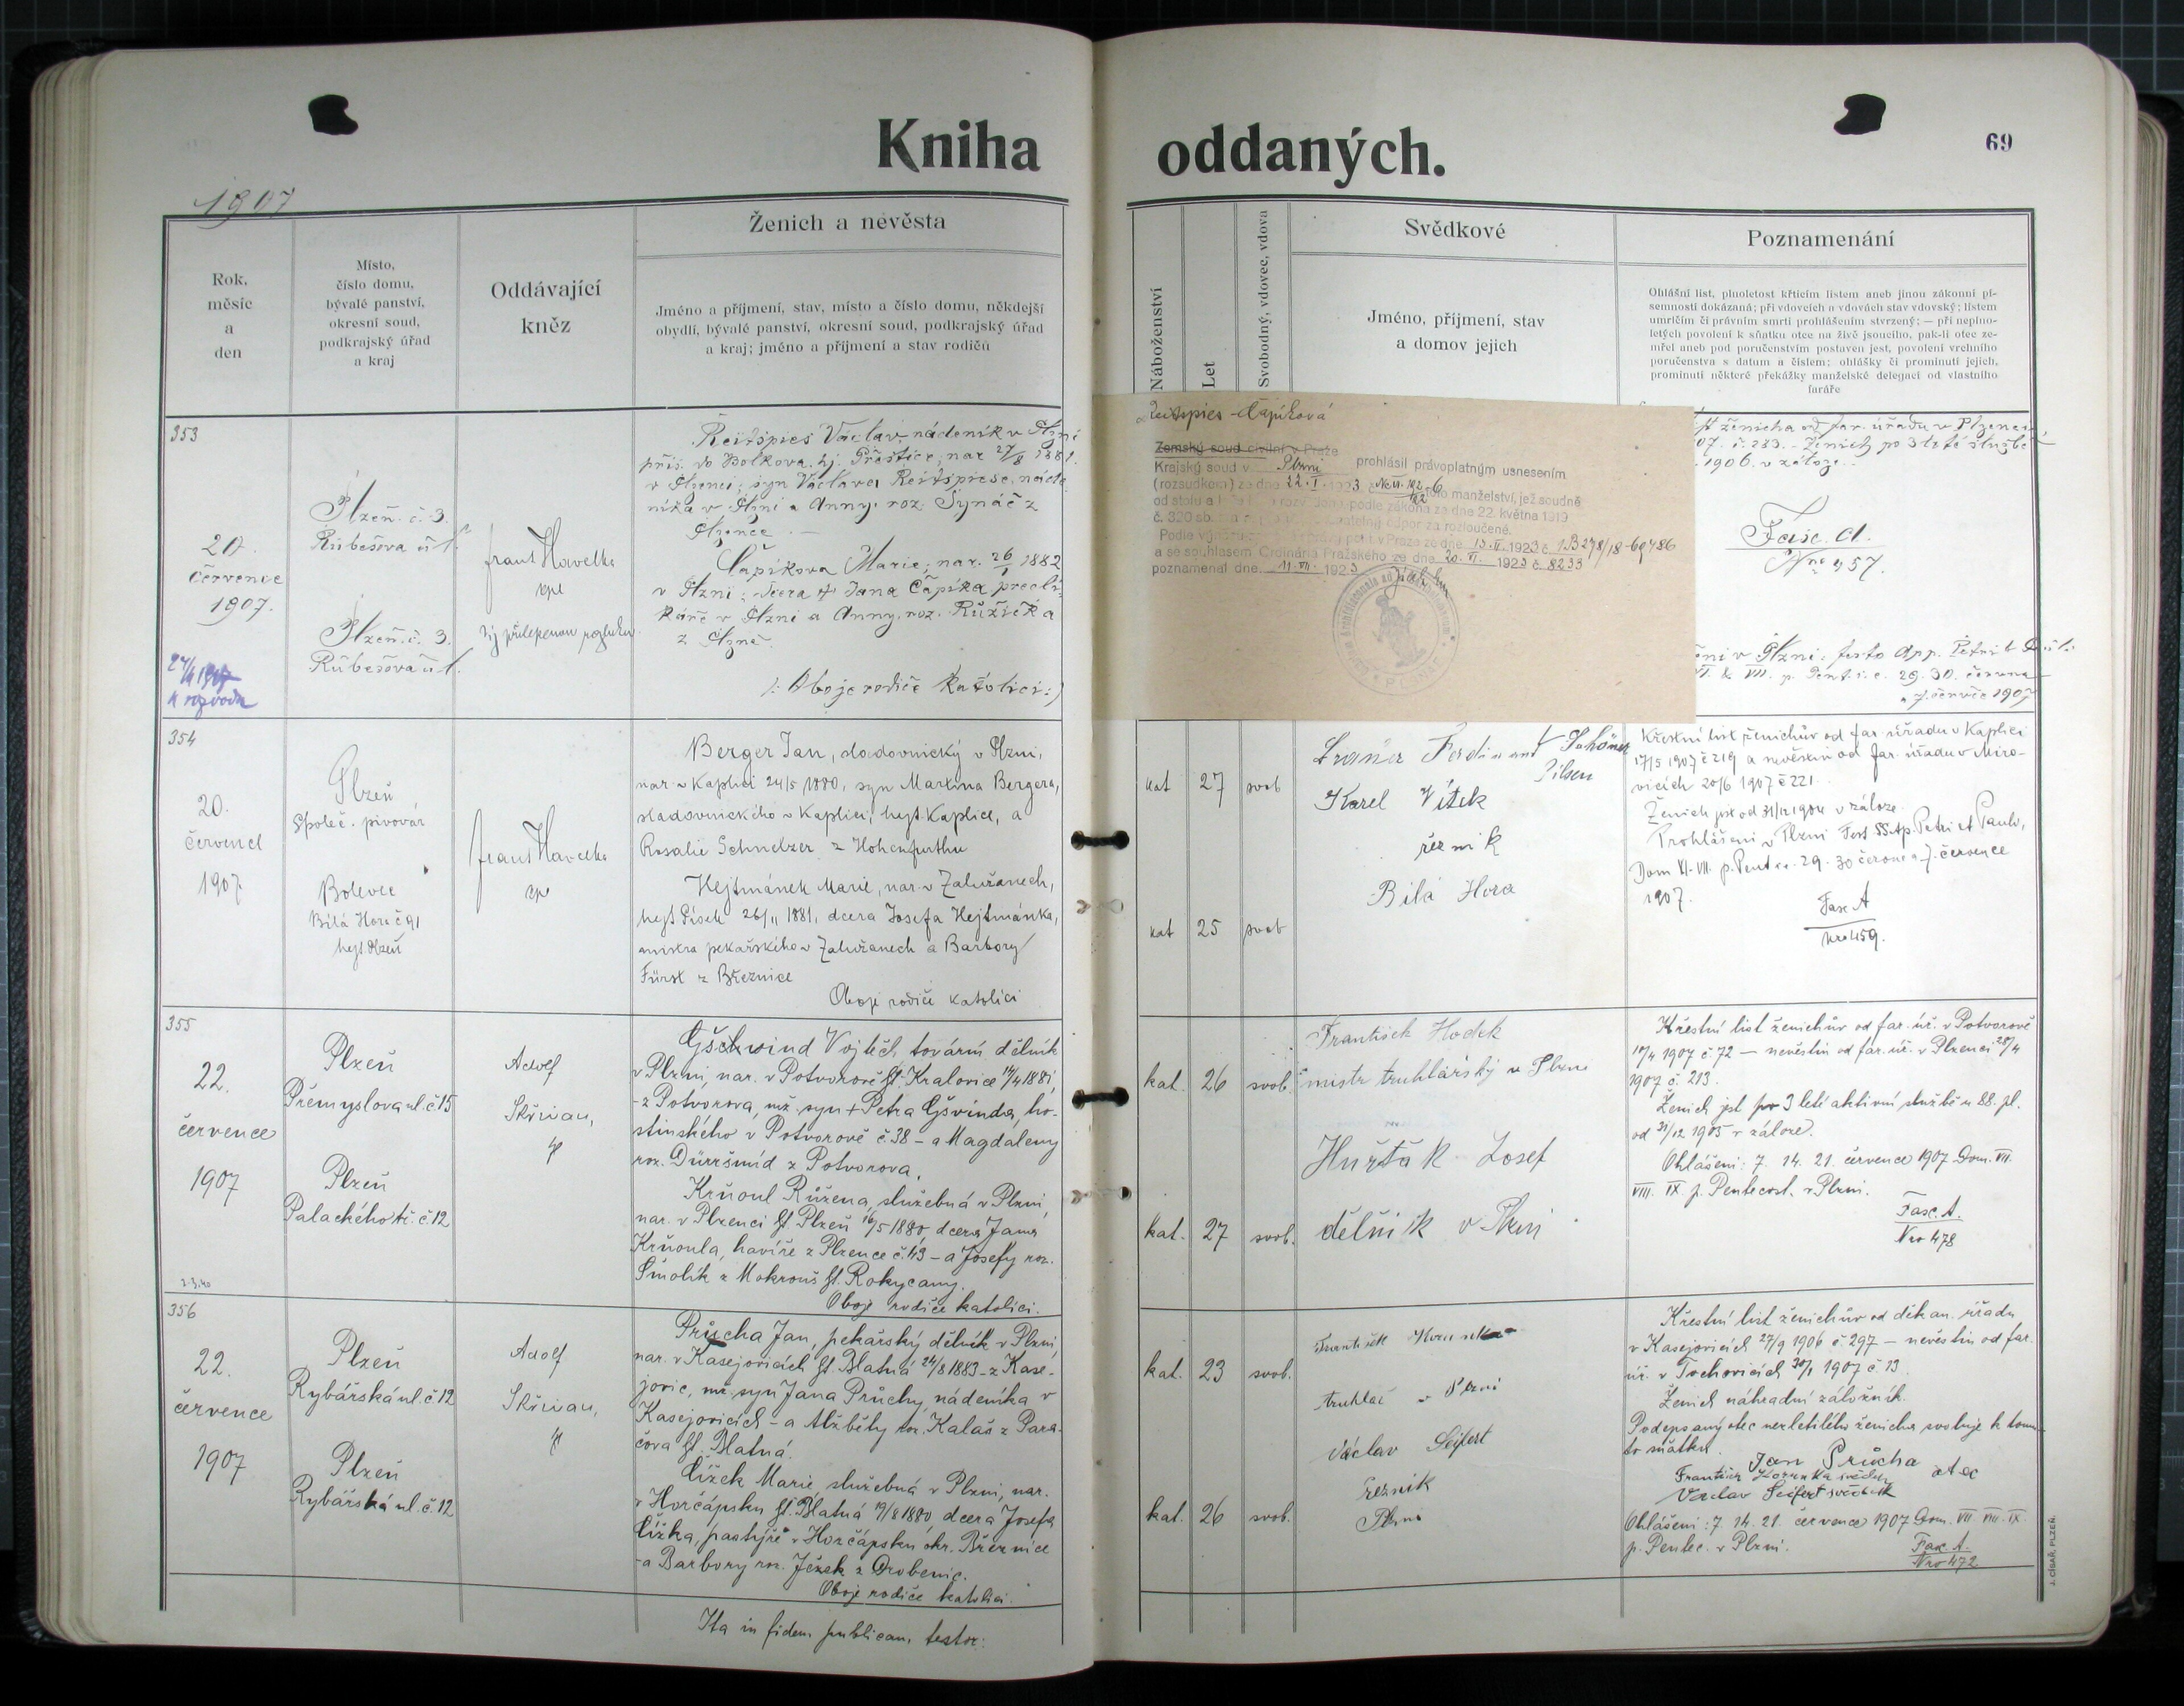 Kniha oddaných.
69
1907
Rok,
měsíc
a
den
Místo,
číslo domu,
bývalé panství,
okresní soud,
podkrajský úřad
a kraj
Oddávající
kněz
Ženich a nevěsta
Jméno a příjmení, stav, místo a číslo domu, někdejší
obydlí, bývalé panství, okresní soud, podkrajský úřad
a kraj; jméno a příjmení a stav rodičů
Náboženství
Let
Svobodný, vdovec, vdova
Svědkové
Jméno, příjmení, stav
a domov jejich
Poznamenání
Ohlášní list, plnoletost křticím listem aneb jinou zákonní pí-
semností dokázaná; při vdovcích a vdovách stav vdovský; listem
umrlčím či právním smrti prohlášením stvrzený; — při neplno-
letých povolení k sňatku otce na živě jsoucího, pak-li otec ze-
mřel aneb pod poručenstvím postaven jest, povolení vrchního
poručenstva s datum a číslem; ohlášky či prominutí jejich,
prominutí některé překážky manželské delegací od vlastního
faráře
353
20.
červenec
1907.
Plzeň. č. 3.
Rubešova ul.
Plzeň. č. 3.
Rubešova ul.
Frant Havelka
Reitspies Václav, nádeník v Plzni
přís. do Bolkova. hj. Přeštice, nar. 27/8 1881.
v Plzenci; syn Václava Reitspiese, náde-
níka v Plzni a Anny, roz. Synáč z
Plzence. —
Čapíkova Marie; nar. 26/1 1882
v Plzni; dcera † Jana Čapíka precli-
káře v Plzni a Anny, roz. Růžička
z Plzně.
/: Oboje rodiče katolíci:/
k rozvodu
Reitspies - Čapíková
Zemský soud civilní v Praze
Krajský soud v Plzni prohlásil právoplatným usnesením
(rozsudkem) ze dne 22. I. 1923 toto manželství, jež soudně
od stolu a podle zákona ze dne 22. května 1919
č. 320 sb. odpor za rozloučené.
v Praze ze dne 13. II. 1923 č.
a se souhlasem Ordinária Pražského ze dne 20. VI. 1923 č. 8233
poznamenal dne 11. VII. 1923
ženicha od far. úřadu v Plzenci
07. č. 283. - Ženich po 3 leté službě
1906. v záloze.
Fasc. A.
Nro 457.
v Plzni: festo App. Petri et Pauli:
VI. & VII. p. Pent. i. e. 29. 30. června
a 7. července 1907
354
20.
červenec
1907
Plzeň
Společ. pivovár
Bolevec
Bílá Hora č 91
hejt. Plzeň
Frant Havelka
Berger Jan, sladovnický v Plzni,
nar v Kaplici 24/5 1880, syn Martina Bergera,
sladovnického v Kaplici, hejt. Kaplice, a
Rosalie Schmelzer z Hohenfurthu
Hejtmánek Marie, nar. v Zalužanech,
hejt Písek 26/11 1881, dcera Josefa Hejtmánka,
mistra pekařského v Zalužanech a Barbory
Fürst z Březnice
Oboji rodiče katolíci
kat 27 svob
kat 25 svob
Ferdinand Schöner
Pilsen
Karel Vítek
řezník
Bílá Hora
Křestní list ženichův od far úřadu v Kaplici
17/5 1907 č 219 a nevěstin od far. úřadu v Miro-
vicích 20/6 1907 č 221.
Ženich jest od 31/12 1904 v záloze.
Prohlášeni v Plzni Fest SS. Ap. Petri et Pauli,
Dom VI. VII. p. Pent i.e. 29. 30 června a 7. července
1907.
Fasc A
Nro 459.
355
22.
července
1907
Plzeň
Přemyslova ul. č 15
Plzeň
Palackého tř. č 12
Adolf
Skřivan,
Gschwind Vojtěch, tovární dělník
v Plzni, nar. v Potvorově ht. Kralovice 14/4 1881,
z Potvorova, mž. syn † Petra Gšvinda, ho-
stinského v Potvorově č. 38 – a Magdaleny
roz. Dürršmíd z Potvorova.
Krňoul Růžena, služebná v Plzni,
nar. v Plzenci ht. Plzeň 16/5 1880, dcera Jana
Krňoula, havíře z Plzence č. 49 – a Josefy roz.
Smolík z Mokrouš ht. Rokycany.
Oboje rodiče katolíci.
kat. 26 svob.
kat. 27 svob.
František Hodek
mistr truhlářský v Plzni
Huřťák Josef
dělník v Plzni
Křestní list ženichův od far. úř. v Potvorově
10/4 1907 č. 72 — nevěstin od far. úř. v Plzenci 28/4
1907 č. 213.
Ženich jest po 3 leté aktivní službě u 88. pl.
od 31/12 1905 v záloze.
Ohlášeni: 7. 14. 21. července 1907 Dom. VII.
VIII. IX. p. Pentecost. v Plzni.
Fasc. A.
Nro 478
356
22.
července
1907
Plzeň
Rybářská ul. č. 12
Plzeň
Rybářská ul. č. 12
Adolf
Skřivan,
Průcha Jan, pekařský dělník v Plzni,
nar. v Kasejovicích ht. Blatná 24/8 1883 – z Kase-
jovic, mž. syn Jana Průchy, nádeníka v
Kasejovicích – a Alžběty roz. Kalaš z Para-
čova ht. Blatná.
Čížek Marie, služebná v Plzni, nar.
v Horčápsku ht. Blatná 19/8 1880, dcera Josefa
Čížka, pastýře v Horčápsku okr. Březnice
– a Barbory roz. Ježek z Drobenic.
Oboje rodiče katolíci.
kat. 23 svob.
kat. 26 svob.
František
truhlář v Plzni
Václav Seifert
řezník
Plzni
Křestní list ženichův od děkan. úřadu
v Kasejovicích 27/9 1906 č. 297 — nevěstin od far.
úř. v Tochovicích 30/1 1907 č 13.
Ženich náhradní záložník.
Podepsaný otec nezletilého ženicha svoluje k tomu-
to sňatku.
Jan Průcha otec
František Korunka svědek
Václav Seifert svědek
Ohlášeni: 7. 14. 21. července 1907 Dom. VII. VIII. IX.
p. Pentec. v Plzni.
Fasc. A.
Nro 472
Ita in fidem publicam testor:
J. CÍSAŘ, PLZEŇ.